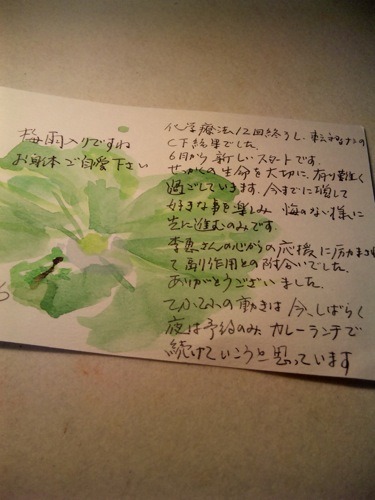 梅雨入りですね
お身体ご自愛下さい
化学療法12回終うし、転移なしの
CT結果でした。
6月から新しいスタートです。
せっかくの生命を大切に、有り難く
過ごしていきます。今までに増して
好きな事を楽しみ 悔のない様に
先に進むのみです。
李恵さんの心からの応援に励まされ
て副作用との附合いでした。
ありがとうございました。
てふてふの動きは 今、しばらく
夜は予約のみ、カレーランチで
続けていこうと思っています